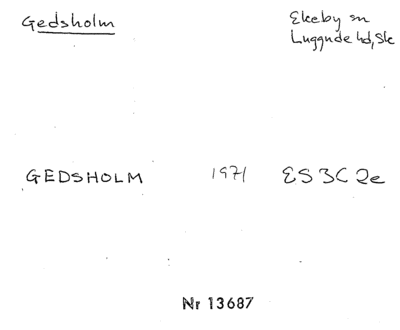 Gedsholm
Ekeby sn
Luggude hd, Sk
GEDSHOLM 1971 ES 3C 2e
Nr 13687